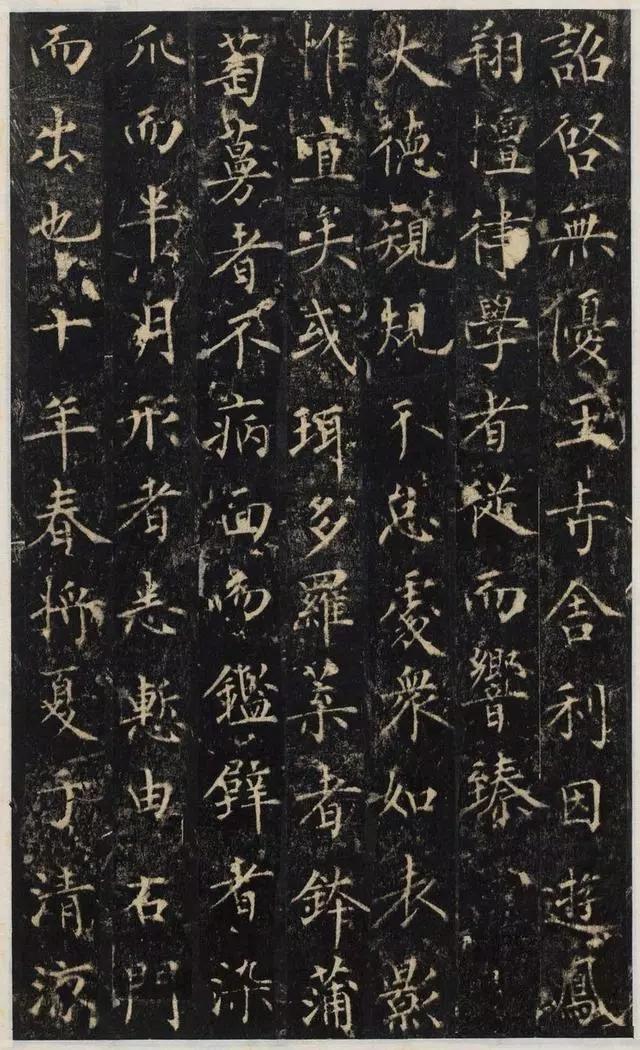 詔啓無優王寺舍利因遊鳳
翔擅律學者從而響臻
大德規規不怠處衆如表影
惟宜矣或珥多羅菜者鉢蒲
萄蒡者不病面喎鑑躃者染
爪而半月形者悉慙由右門
而出也十年春將夏于清涼